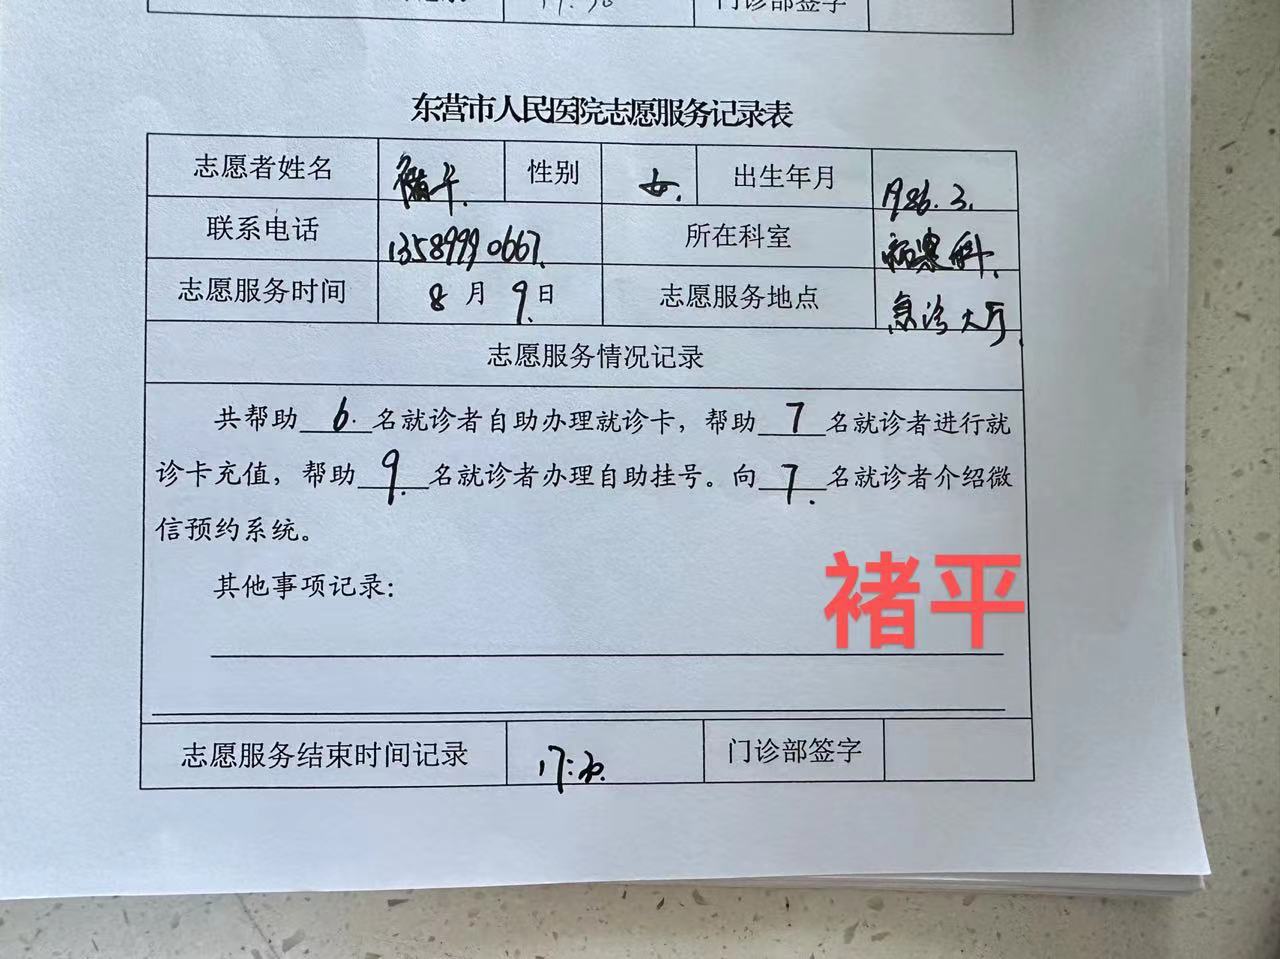 门诊部签字
东营市人民医院志愿服务记录表
志愿者姓名 褚平 性别 女 出生年月 1986.3.
联系电话 13589990667 所在科室 病案科
志愿服务时间 8月9日 志愿服务地点 急诊大厅
志愿服务情况记录
共帮助 6 名就诊者自助办理就诊卡，帮助 7 名就诊者进行就
诊卡充值，帮助 9 名就诊者办理自助挂号。向 7 名就诊者介绍微
信预约系统。
其他事项记录：
褚平
志愿服务结束时间记录 17:30 门诊部签字